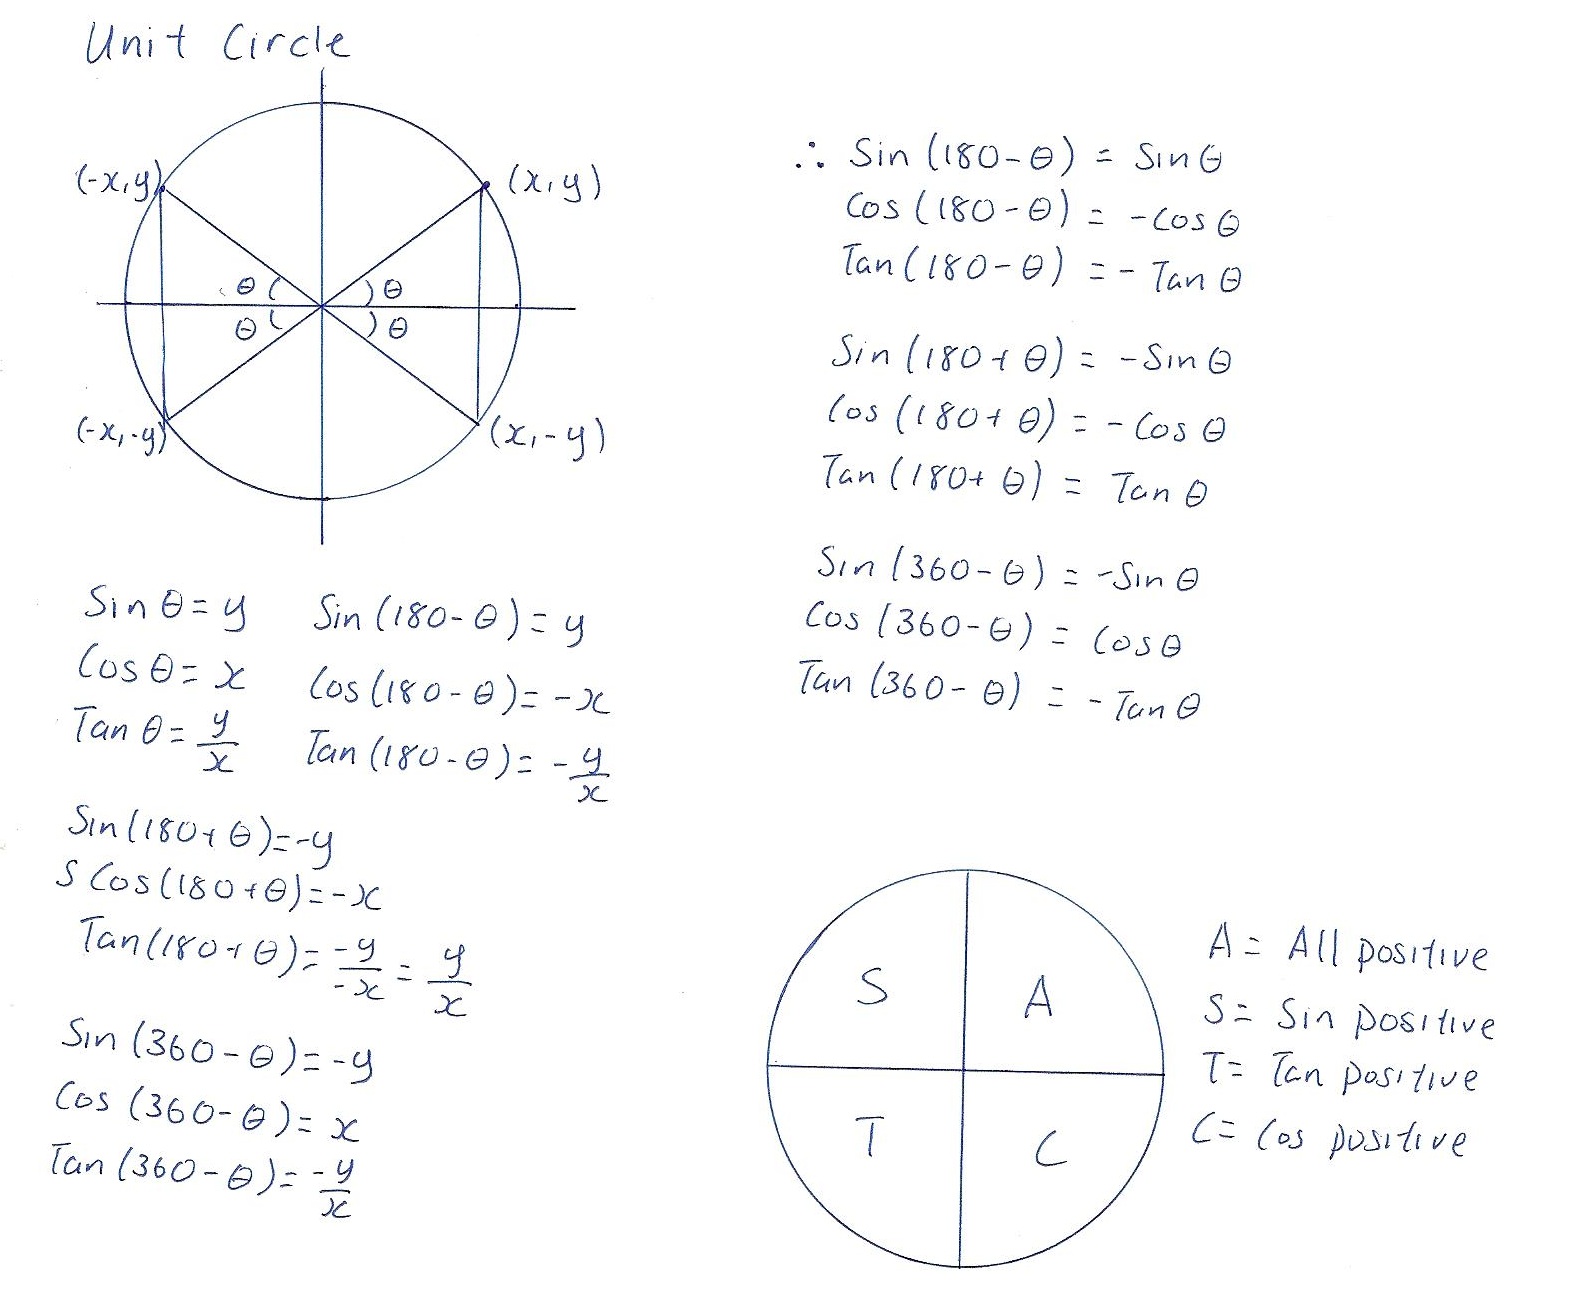 Unit Circle
(-x,y) (x,y)
θ θ
θ θ
(-x,-y) (x,-y)
Sin θ = y
Cos θ = x
Tan θ = y/x
Sin (180-θ) = y
Cos (180-θ) = -x
Tan (180-θ) = -y/x
Sin (180+θ) = -y
S Cos (180+θ) = -x
Tan (180+θ) = -y/-x = y/x
Sin (360-θ) = -y
Cos (360-θ) = x
Tan (360-θ) = -y/x
∴ Sin (180-θ) = Sin θ
Cos (180-θ) = -Cos θ
Tan (180-θ) = -Tan θ
Sin (180+θ) = -Sin θ
Cos (180+θ) = -Cos θ
Tan (180+θ) = Tan θ
Sin (360-θ) = -Sin θ
Cos (360-θ) = Cos θ
Tan (360-θ) = -Tan θ
S A
T C
A = All positive
S = Sin positive
T = Tan positive
C = Cos positive